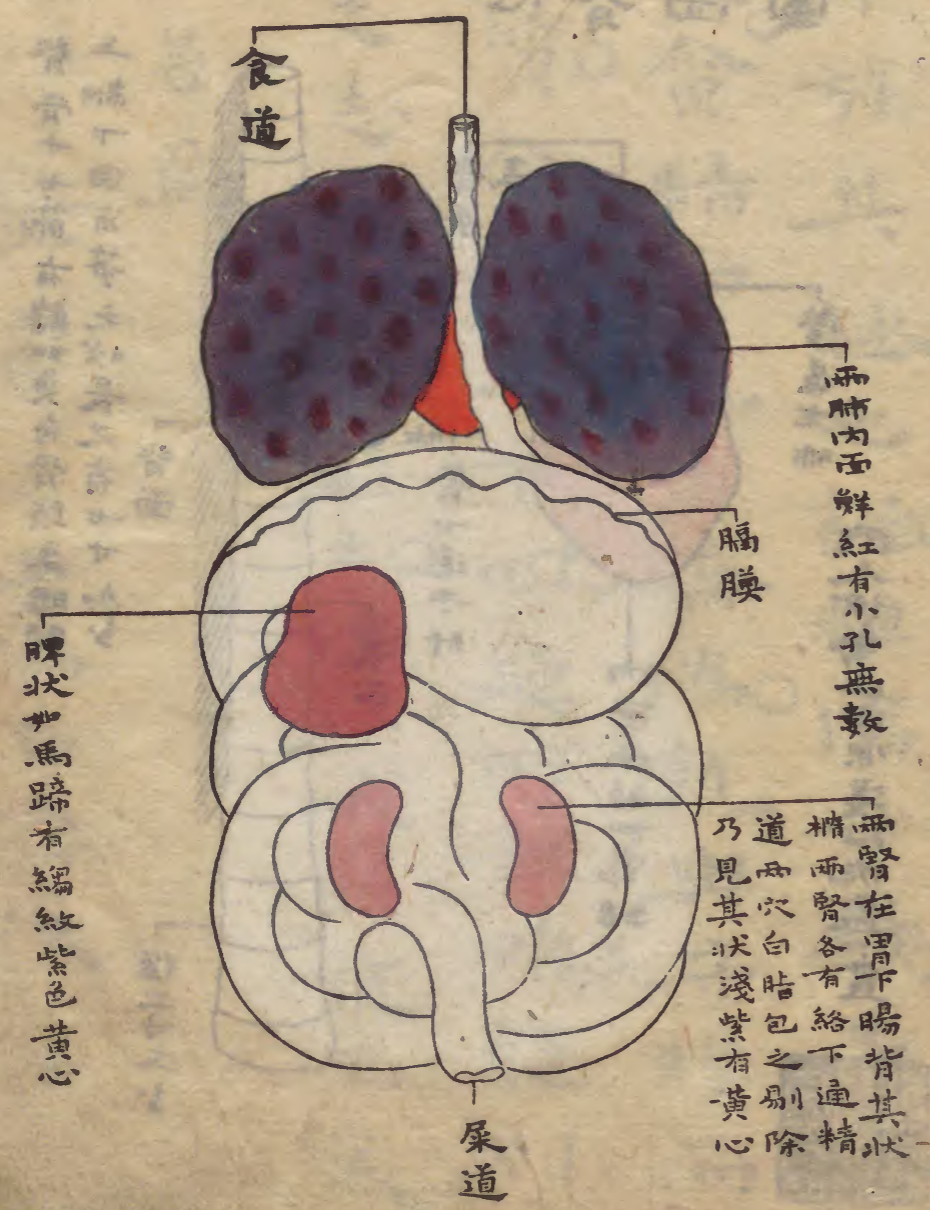 食道
兩肺內面鮮紅有小孔無數
膈膜
脾状如馬蹄有縐紋紫色黄心
兩腎在胃下腸背其状
橢兩腎各有絡下通精
道兩穴白脂包之剔除
乃見其状淺紫有黄心
屎道